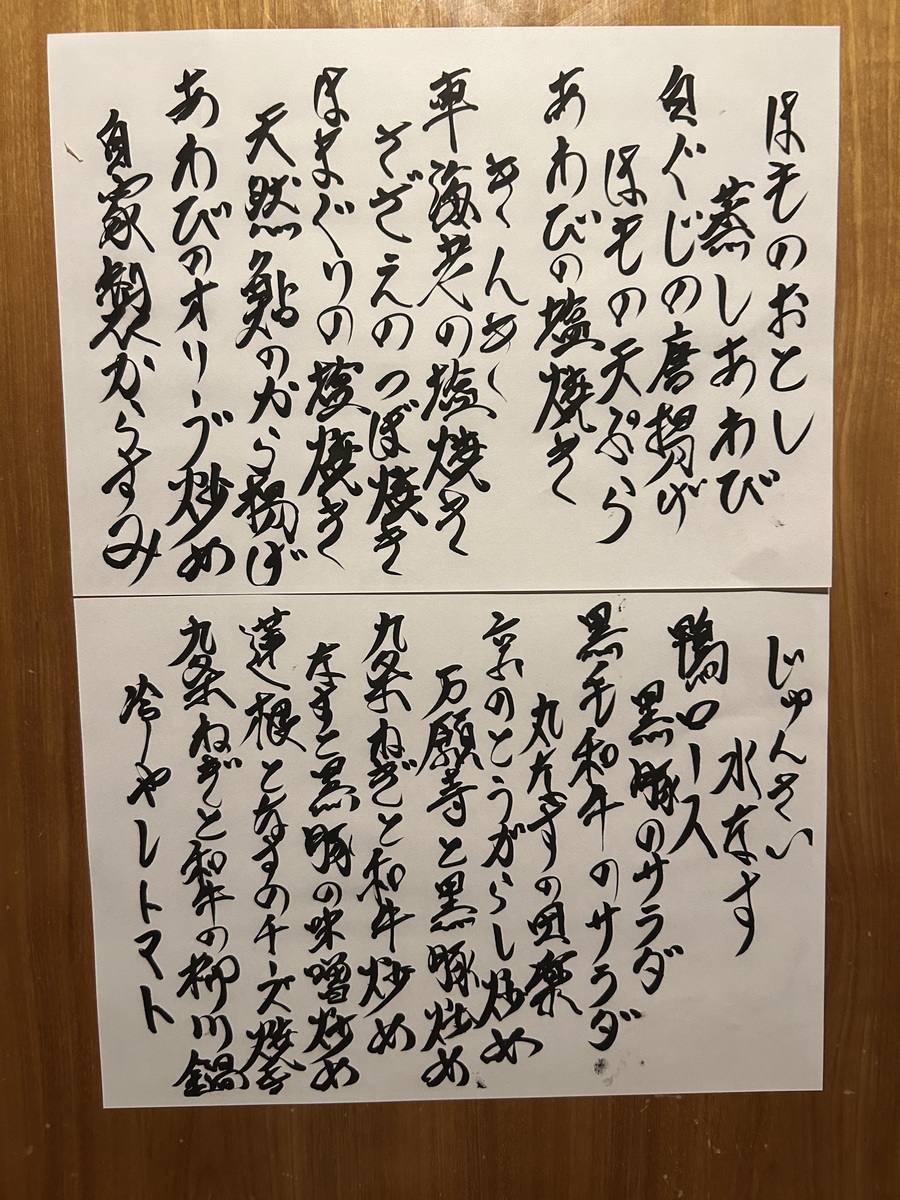 はものおとし
蒸しあわび
白ぐじの唐揚げ
はもの天ぷら
あわびの塩焼き
きんき
車海老の塩焼き
さざえのつぼ焼き
はまぐりの塩焼き
天然鮎のから揚げ
あわびのオリーブ炒め
自家製からすみ
じゅんさい
水なす
鴨ロース
黒豚のサラダ
黒毛和牛のサラダ
丸なすの田楽
京のとうがらし炒め
万願寺と黒豚炒め
九条ねぎと和牛炒め
なすと黒豚の味噌炒め
蓮根となすのチーズ焼き
九条ねぎと和牛の柳川鍋
冷やしトマト